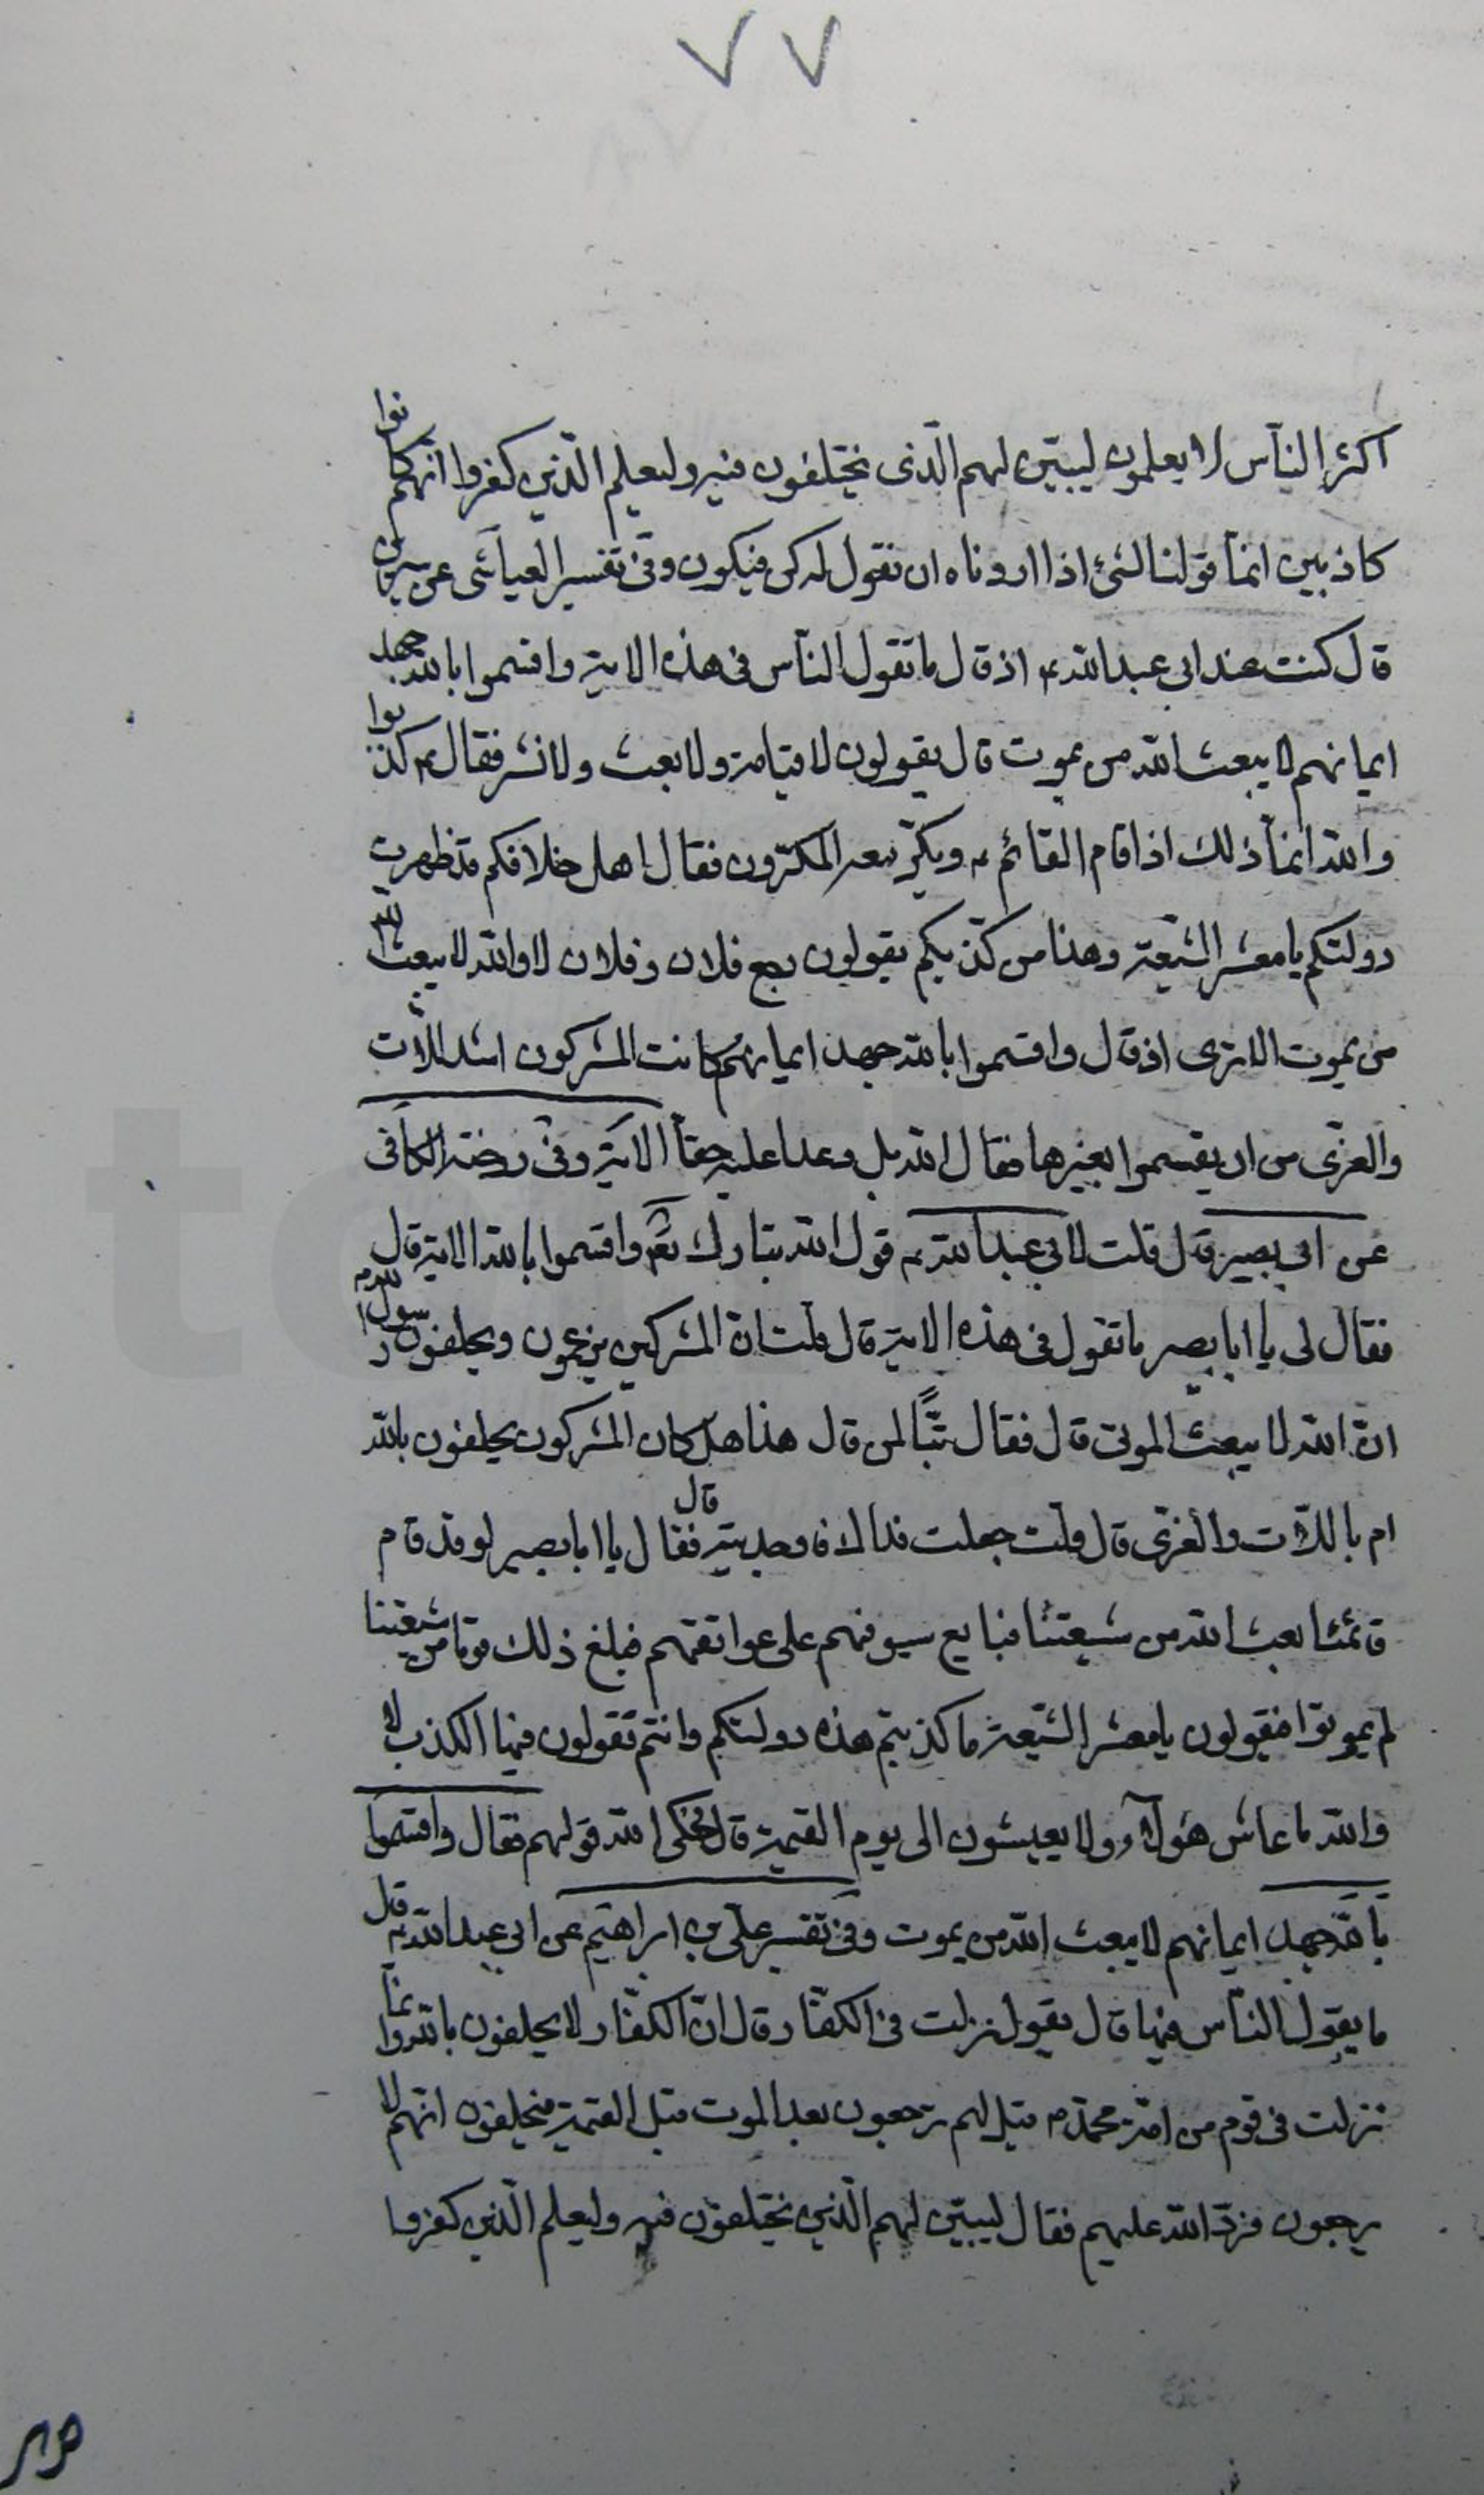 ٧٧
اكثر الناس لا يعلمون ليبيّن لهم الّذى يختلفون فيه وليعلم الّذين كفروا انّهم كانوا
كاذبين انما قولنا لشئ اذا اردناه ان نقول له كن فيكون وفى تفسير العياشى عن سيرين
قال كنت عند ابى عبد الله ع اذ قال ما تقول الناس فى هذه الاية واقسموا بالله جهد
ايمانهم لا يبعث الله من يموت قال يقولون لا قيامة ولا بعث ولا نشر فقال ع كذبوا
والله انما ذلك اذا قام القائم ع ويكرّ معه المكرّون فقال اهل خلافكم قد ظهرت
دولتكم يا معشر الشيعة وهذا من كذبكم يقولون رجع فلان وفلان لا والله لا يبعث الله
من يموت الا ترى اذ قال واقسموا بالله جهد ايمانهم كانت المشركون اشد للّات
والعزّى من ان يقسموا بغيرها فقال الله بلى وعدا عليه حقا الاية وفى روضة الكافى
عن ابى بصير قال قلت لابى عبد الله ع قول الله تبارك وتعالى واقسموا بالله الاية قال
فقال لى يا ابا بصير ما تقول فى هذه الاية قال قلت انّ المشركين يزعمون ويحلفون لرسول الله ص
انّ الله لا يبعث الموتى قال فقال تبّا لمن قال هذا هل كان المشركون يحلفون بالله
ام باللّات والعزّى قال قلت جعلت فداك فاوجدنيه قال فقال يا ابا بصير لو قد قام
قائمنا بعث الله من شيعتنا قبايع سيوفهم على عواتقهم فبلغ ذلك قوما من شيعتنا
لم يموتوا فيقولون يا معشر الشّيعة ما كذبتم هذه دولتكم وانتم تقولون فيها الكذب لا
والله ما عاش هؤلاء ولا يعيشون الى يوم القيمة قال فحكى الله قولهم فقال واقسموا
بالله جهد ايمانهم لا يبعث الله من يموت وفى تفسير على بن ابراهيم عن ابى عبد الله ع قال
ما يقول الناس فيها قال يقول نزلت فى الكفّار قال انّ الكفّار لا يحلفون بالله وانما
نزلت فى قوم من امّة محمّد ص قيل لهم ترجعون بعد الموت قبل القيمة فيحلفون انهم لا
يرجعون فردّ الله عليهم فقال ليبيّن لهم الّذى يختلفون فيه وليعلم الّذين كفروا